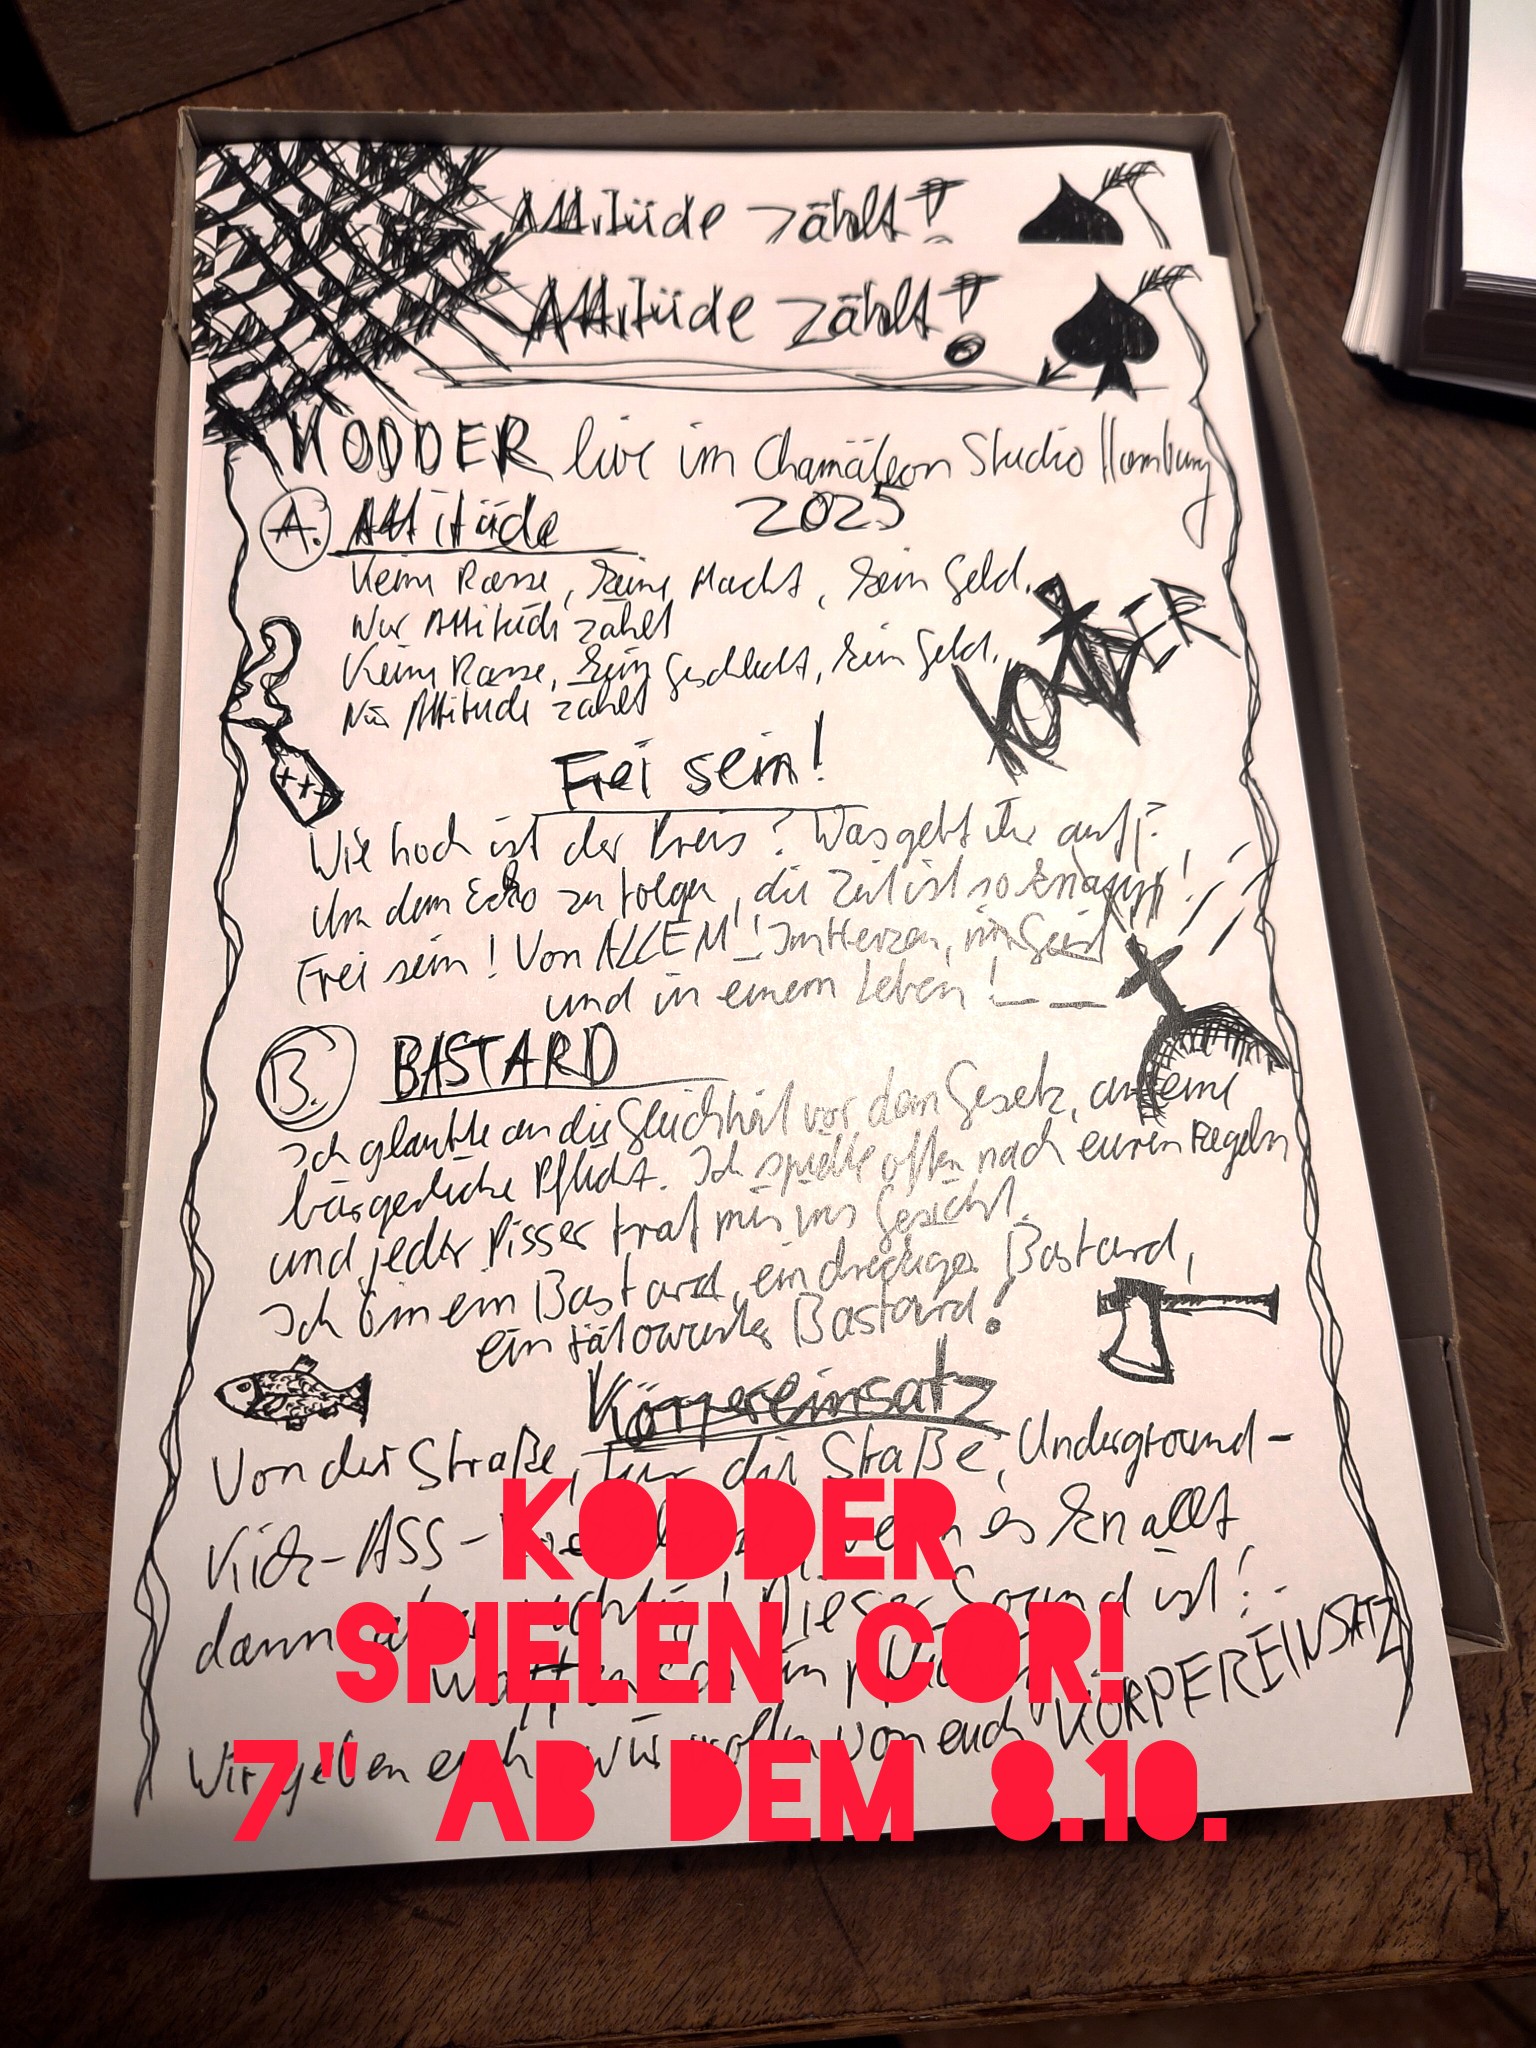 Attitüde zählt!
Attitüde zählt!
KODDER live im Chamäleon Studio Hamburg
2025
A. Attitüde
Keine Rasse, keine Macht, kein Geld.
Nur Attitüde zählt
Keine Rasse, kein Geschlecht, kein Geld.
Nur Attitüde zählt
KODDER
Frei sein!
Wie hoch ist der Preis? Was gebt ihr auf?
Um dem Echo zu folgen, die Zeit ist so knapp!
Frei sein! Von ALLEM! Im Herzen, im Geist
und in einem Leben!
B. BASTARD
Ich glaubte an die Gleichheit vor dem Gesetz, an eine
bürgerliche Pflicht. Ich spielte offen nach euren Regeln
und jeder Pisser trat mir ins Gesicht.
Ich bin ein Bastard, ein dreckiger Bastard,
ein tätowierter Bastard!
Körpereinsatz
Von der Straße, für die Straße, Underground-
Kick-ASS- es knallt
dann richtig! Dieser Sound ist!
Wir geben euch wir wollen von euch KÖRPEREINSATZ
KODDER
SPIELEN COR!
7" AB DEM 8.10.